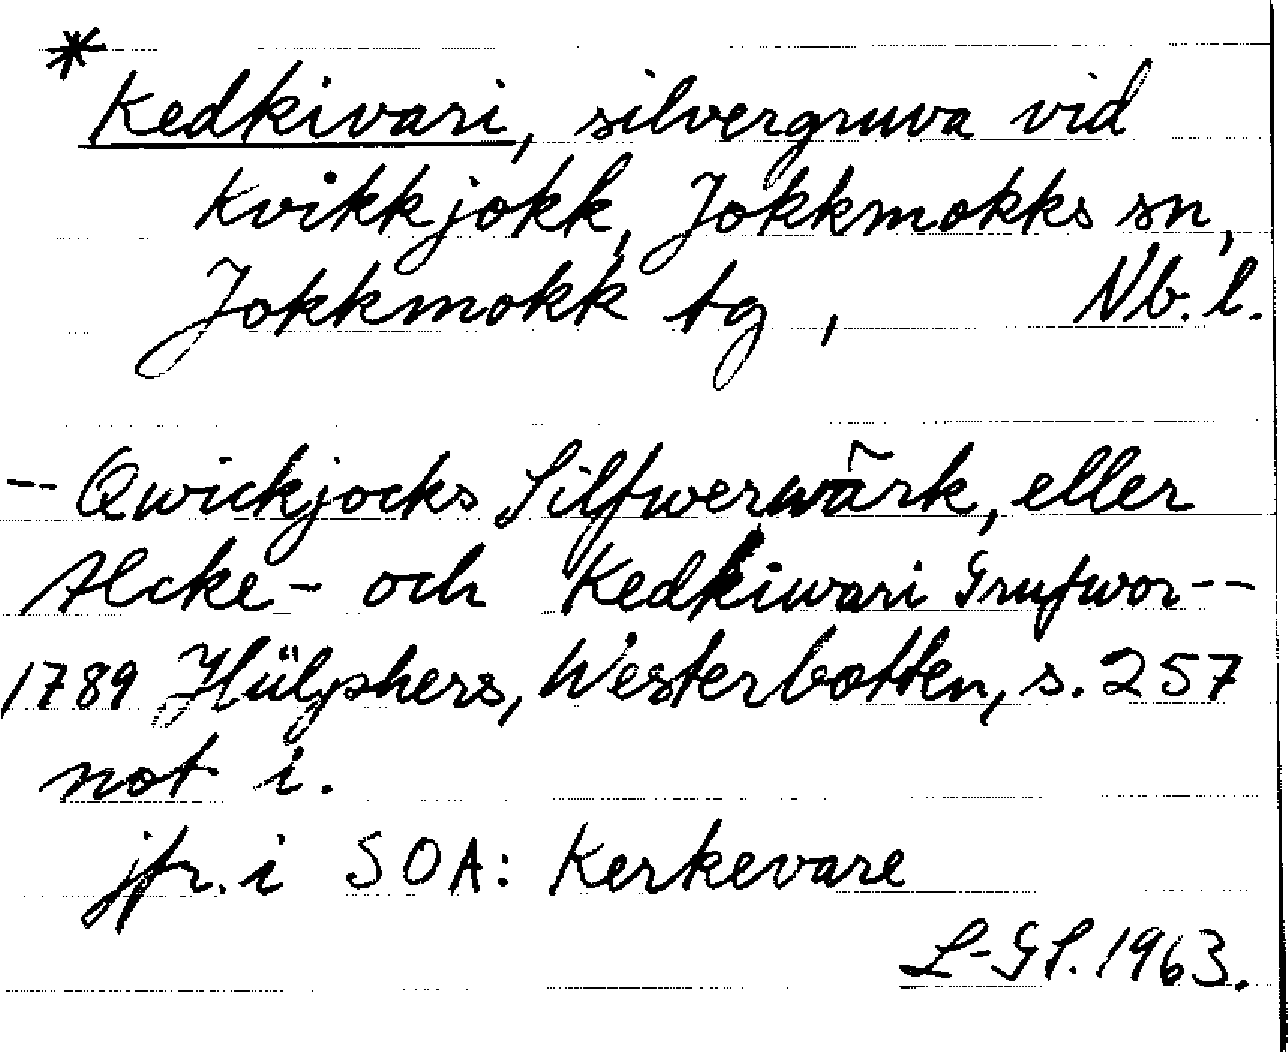 *
Kedkivari, silvergruva vid
Kvikkjokk, Jokkmokks sn,
Jokkmokk tg, Nb. l.
-- Qwickjocks Silfwerwärk, eller
Alcke- och Kedkiwari Grufwor--
1789 Hülphers, Westerbotten, s. 257
not i.
jfr. i SOA: Kerkevare
L-GS. 1963.